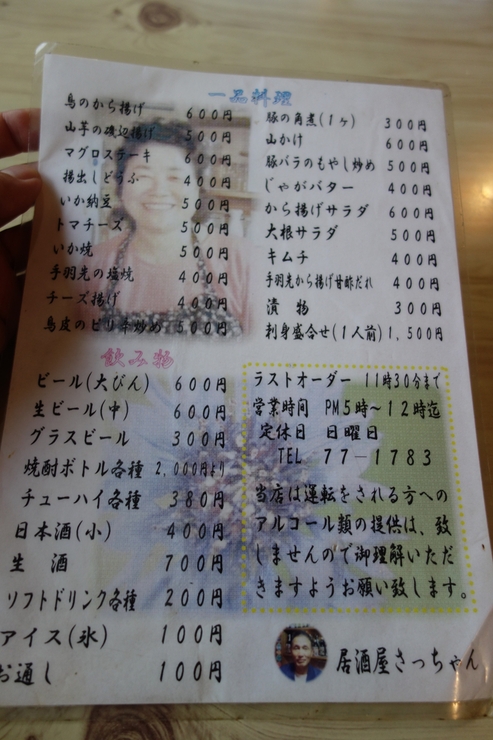 一品料理
鳥のから揚げ 600円
山芋の磯辺揚げ 500円
マグロステーキ 600円
揚出しどうふ 400円
いか納豆 500円
トマチーズ 500円
いか焼 500円
手羽先の塩焼 400円
チーズ揚げ 400円
鳥皮のピリ辛炒め 500円
豚の角煮(1ヶ) 300円
山かけ 600円
豚バラのもやし炒め 500円
じゃがバター 400円
から揚げサラダ 600円
大根サラダ 500円
キムチ 400円
手羽先から揚げ甘酢だれ 400円
漬物 300円
刺身盛合せ(1人前) 1,500円
飲み物
ビール(大びん) 600円
生ビール(中) 600円
グラスビール 300円
焼酎ボトル各種 2,000円より
チューハイ各種 380円
日本酒(小) 400円
生酒 700円
ソフトドリンク各種 200円
アイス(氷) 100円
お通し 100円
ラストオーダー 11時30分まで
営業時間 PM5時~12時迄
定休日 日曜日
TEL 77-1783
当店は運転をされる方への
アルコール類の提供は、致
しませんので御理解いただ
きますようお願い致します。
居酒屋さっちゃん